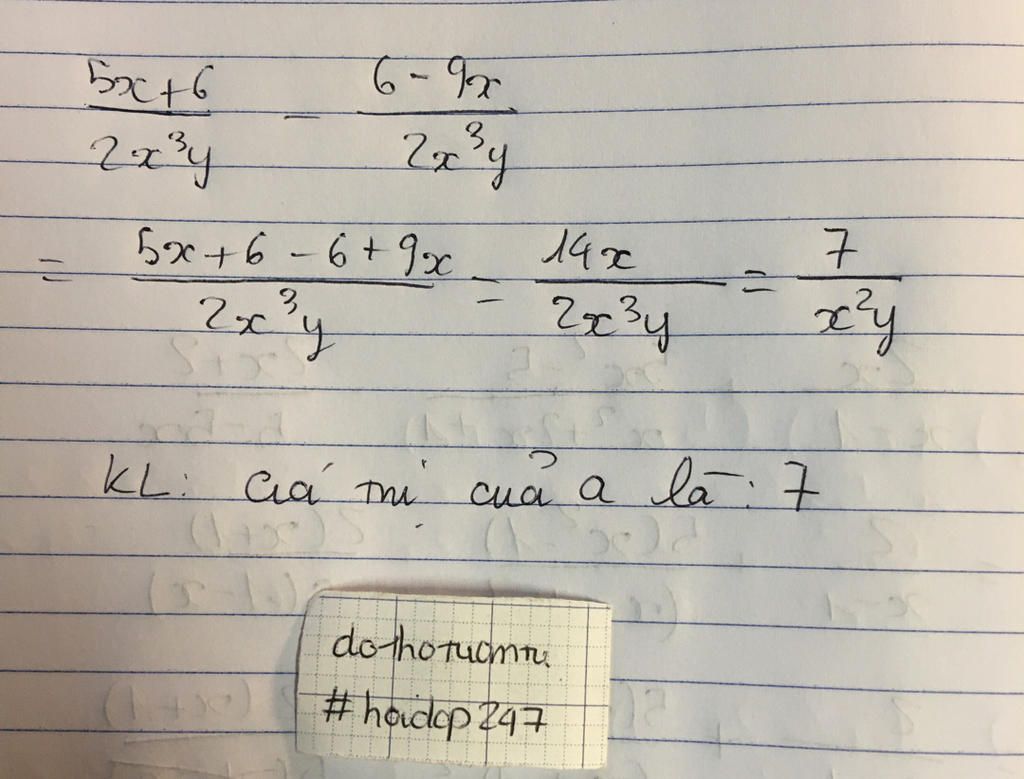 5x+6 / 2x³y − 6 − 9x / 2x³y
= 5x + 6 − 6 + 9x / 2x³y = 14x / 2x³y = 7 / x²y
KL: Giá trị của a là: 7
#hoidap247